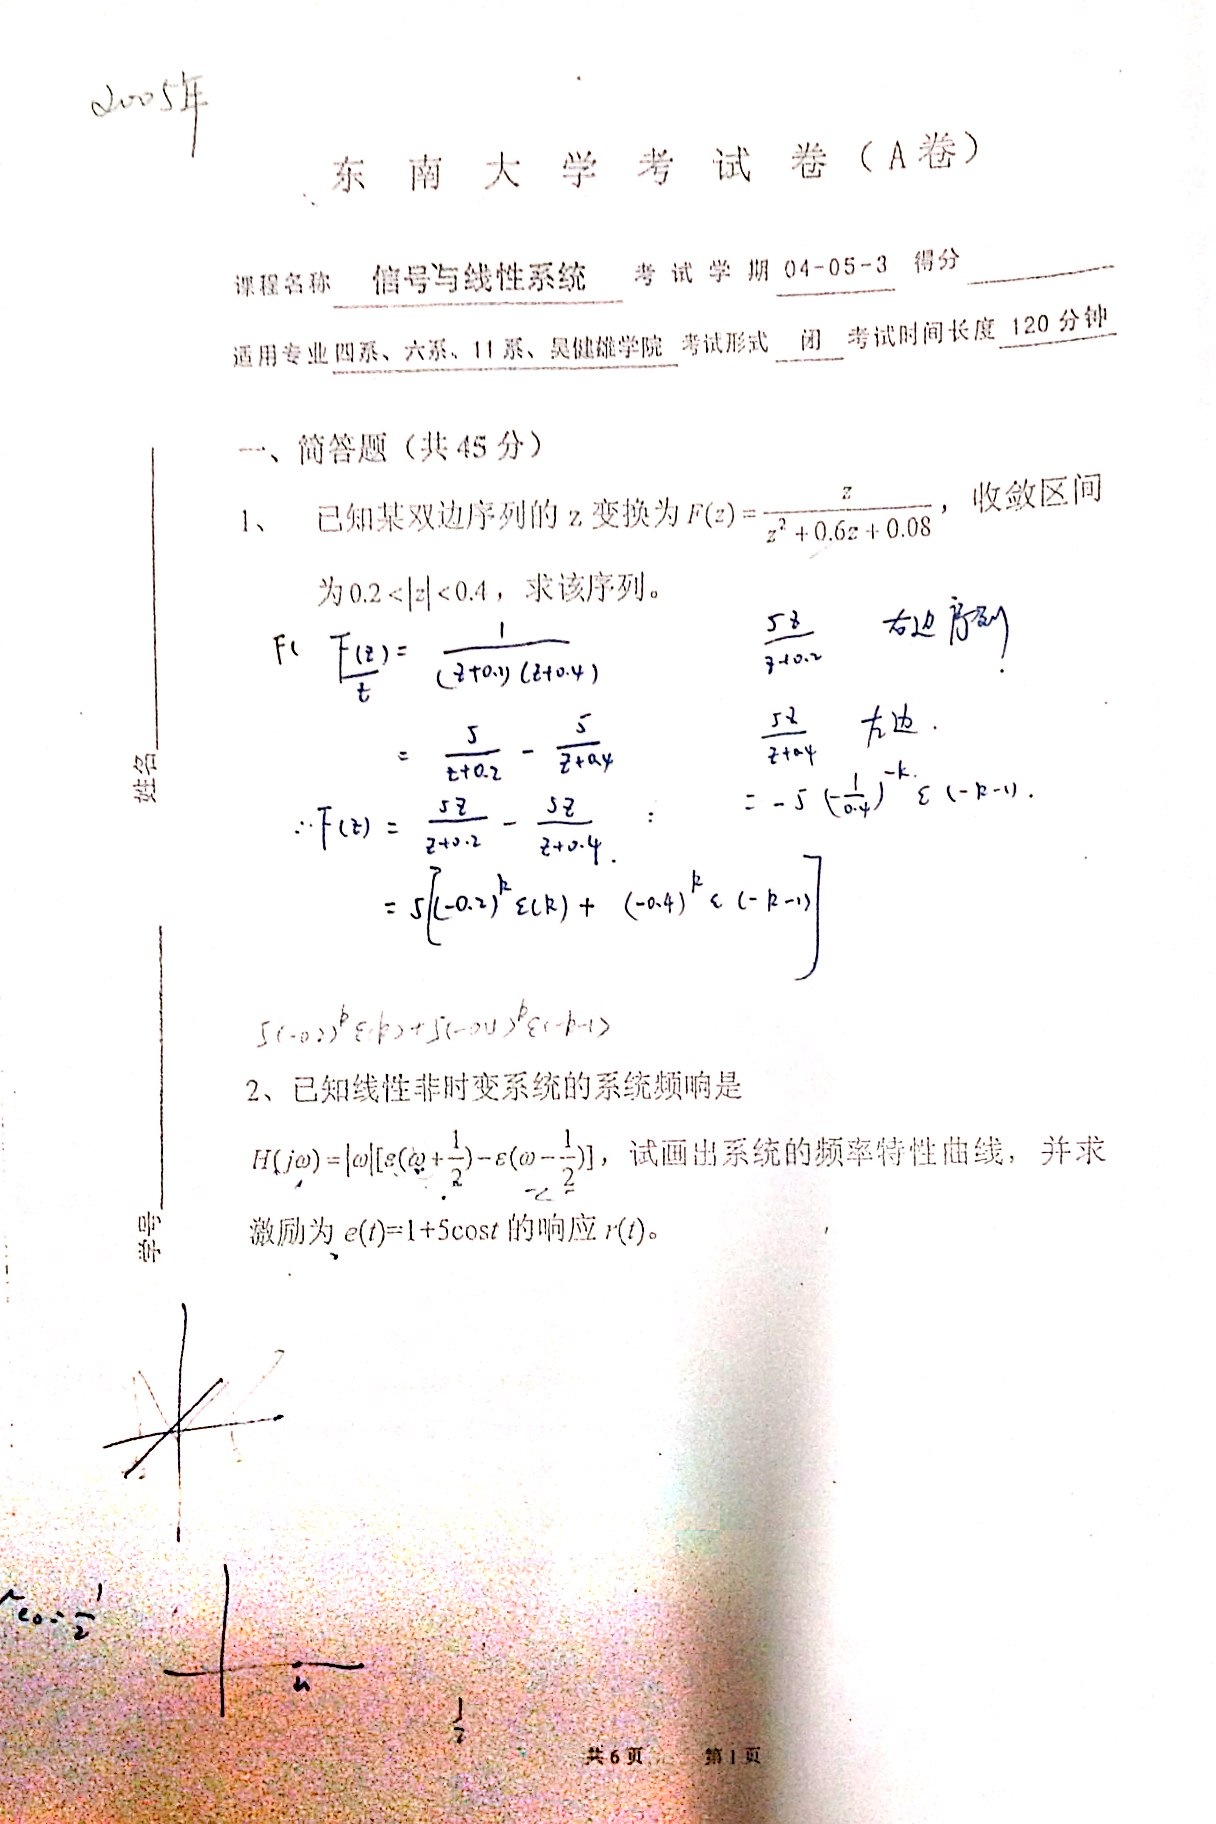 2005年
东 南 大 学 考 试 卷（A卷）
课程名称 信号与线性系统 考 试 学 期 04-05-3 得分
适用专业 四系、六系、11系、吴健雄学院 考试形式 闭 考试时间长度 120分钟
一、简答题（共45分）
1、 已知某双边序列的 z 变换为 F(z)=z/(z²+0.6z+0.08)，收敛区间
为 0.2<|z|<0.4，求该序列。
F( F(z)/z = 1/((z+0.2)(z+0.4)) 5z/(z+0.2) 右边序列
= 5/(z+0.2) - 5/(z+0.4) 5z/(z+0.4) 左边.
∴F(z) = 5z/(z+0.2) - 5z/(z+0.4). : = -5(-1/0.4)^-k ε(-k-1).
= 5[(-0.2)^k ε(k) + (-0.4)^k ε(-k-1)]
5(-0.2)^k ε(k)+5(-0.4)^k ε(-k-1)
2、已知线性非时变系统的系统频响是
H(jω)=|ω|[ε(ω+1/2)-ε(ω-1/2)]，试画出系统的频率特性曲线，并求
激励为 e(t)=1+5cost 的响应 r(t)。
姓名
学号
1/2
共6页 第1页